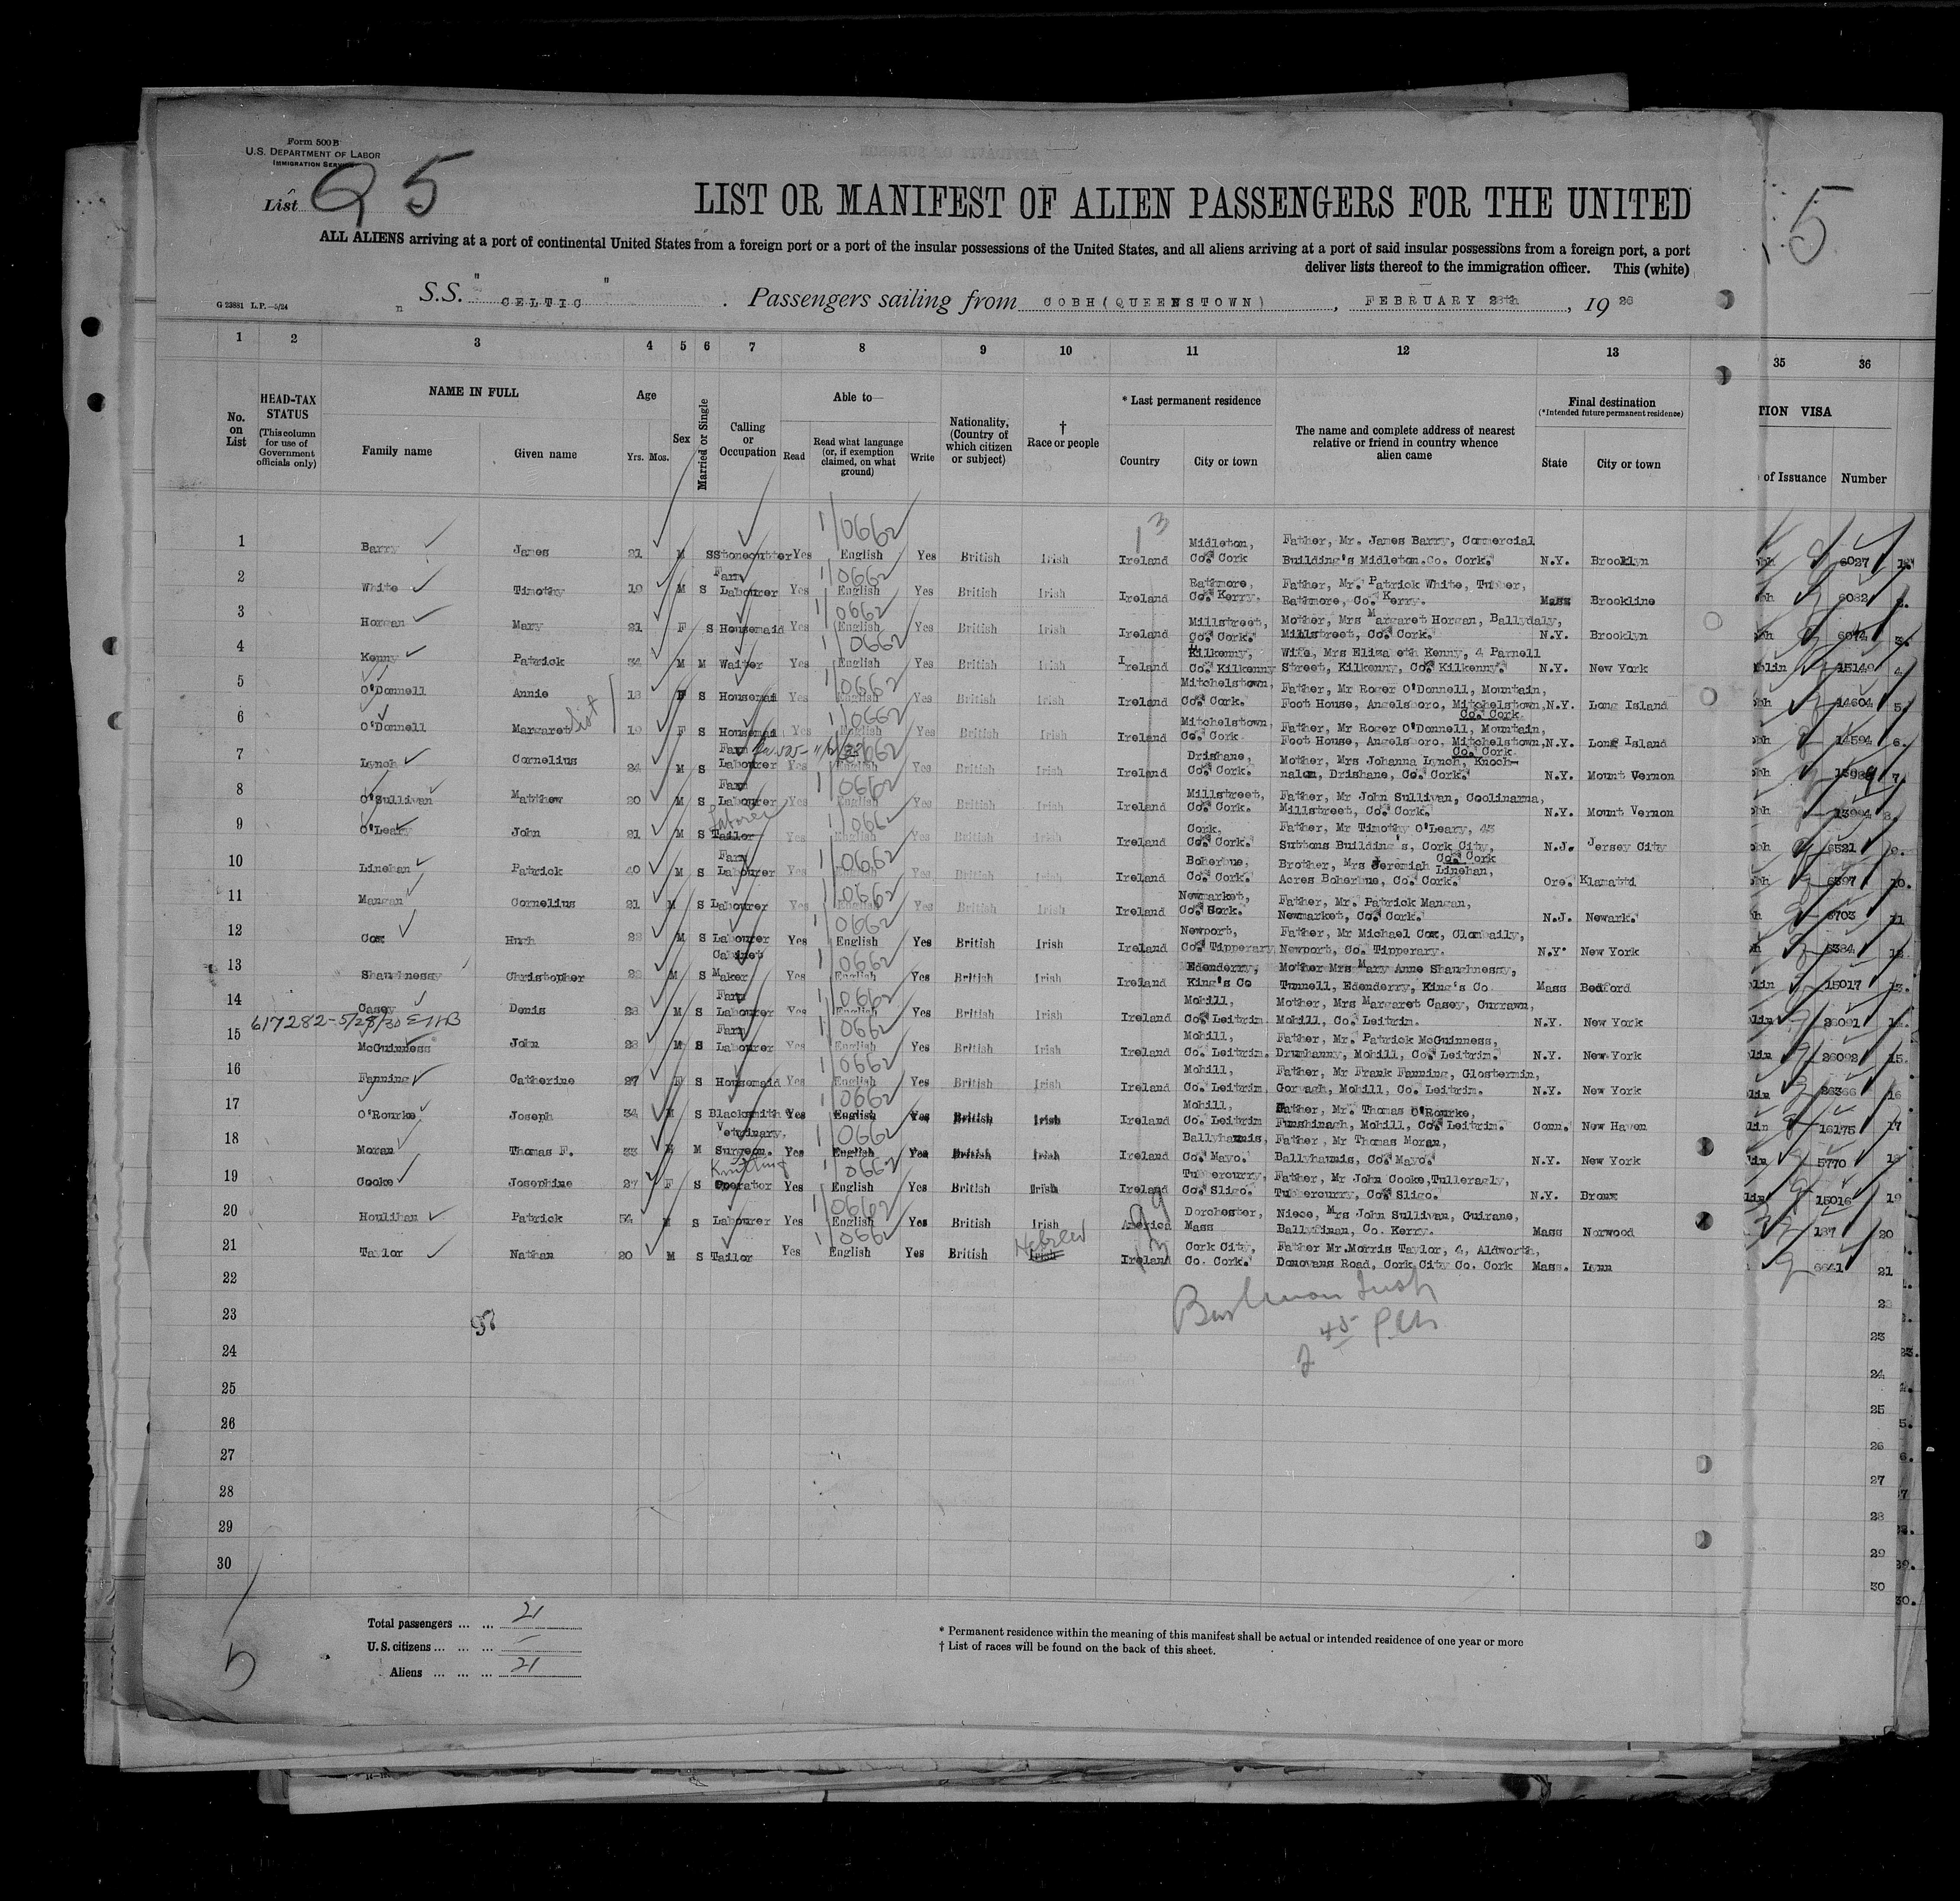 Form 500 B
U.S. DEPARTMENT OF LABOR
IMMIGRATION SERVICE
List 5
5
LIST OR MANIFEST OF ALIEN PASSENGERS FOR THE UNITED
ALL ALIENS arriving at a port of continental United States from a foreign port or a port of the insular possessions of the United States, and all aliens arriving at a port of said insular possessions from a foreign port, a port
deliver lists thereof to the immigration officer. This (white)
G 23881 L.P.—5/24
S.S. " CELTIC " . Passengers sailing from COBH (QUEENSTOWN), FEBRUARY 28th, 19 26
1 2 3 4 5 6 7 8 9 10 11 12 13 35 36
No. on List
HEAD-TAX STATUS (This column for use of Government officials only)
NAME IN FULL Family name Given name
Age Yrs. Mos.
Sex
Married or Single
Calling or Occupation
Able to— Read Read what language (or, if exemption claimed, on what ground) Write
Nationality, (Country of which citizen or subject)
† Race or people
* Last permanent residence Country City or town
The name and complete address of nearest relative or friend in country whence alien came
Final destination (*Intended future permanent residence) State City or town
TION VISA of Issuance Number
1 Barry James 21 M S Stonecutter Yes English Yes British Irish Ireland Midleton, Co. Cork Father, Mr. James Barry, Commercial Building's Midleton.Co. Cork. N.Y. Brooklyn 6027
2 White Timothy 19 M S Farm Labourer Yes English Yes British Irish Ireland Rathmore, Co. Kerry. Father, Mr. Patrick White, Tubber, Rathmore, Co. Kerry. Mass Brookline 6082
3 Horgan Mary 21 F S Housemaid Yes English Yes British Irish Ireland Millstreet, Co. Cork. Mother, Mrs Margaret Horgan, Ballydaly, Millstreet, Co. Cork. N.Y. Brooklyn 6074
4 Kenny Patrick 34 M M Waiter Yes English Yes British Irish Ireland Kilkenny, Co. Kilkenny Wife, Mrs Eliza eth Kenny, 4 Parnell Street, Kilkenny, Co. Kilkenny. N.Y. New York 15149
5 O'Donnell Annie 18 F S Housemai Yes English Yes British Irish Ireland Mitchelstown, Co. Cork. Father, Mr Roger O'Donnell, Mountain, Foot House, Angelsboro, Mitchelstown, Co. Cork. N.Y. Long Island 14604
6 O'Donnell Margaret 19 F S Housemai Yes English Yes British Irish Ireland Mitchelstown, Co. Cork Father, Mr Roger O'Donnell, Mountain, Foot House, Angelsboro, Mitchelstown, Co. Cork N.Y. Long Island 14594
7 Lynch Cornelius 24 M S Farm Labourer Yes English Yes British Irish Ireland Drishane, Co. Cork. Mother, Mrs Johanna Lynch, Knoch-nalon, Drishane, Co. Cork. N.Y. Mount Vernon
8 O'Sullivan Matthew 20 M S Farm Labourer Yes English Yes British Irish Ireland Millstreet, Co. Cork. Father, Mr John Sullivan, Coolinarna, Millstreet, Co. Cork. N.Y. Mount Vernon 13994
9 O'Leary John 21 M S Tailor Laborer Yes English Yes British Irish Ireland Cork, Co. Cork. Father, Mr Timothy O'Leary, 43 Suttons Building's, Cork City, Co. Cork N.J. Jersey City 6521
10 Linehan Patrick 40 M S Farm Labourer Yes English Yes British Irish Ireland Boherbue, Co. Cork. Brother, Mrs Jeremiah Linehan, Acres Boherbue, Co. Cork. Ore. Klamattd 6597
11 Mangan Cornelius 21 M S Labourer Yes English Yes British Irish Ireland Newmarket, Co. Cork. Father, Mr. Patrick Mangan, Newmarket, Co. Cork. N.J. Newark. 6703
12 Cox Hugh M S Labourer Yes English Yes British Irish Ireland Newport, Co. Tipperary Father, Mr Michael Cox, Clonbaily, Newport, Co. Tipperary. N.Y. New York 6384
13 Shaughnessy Christopher M S Cabinet Maker Yes English Yes British Irish Ireland Edenderry, King's Co Mother Mrs Mary Anne Shaughnessy, Tunnell, Edenderry, King's Co. Mass Bedford 15017
14 Casey Denis M S Farm Labourer Yes English Yes British Irish Ireland Mohill, Co. Leitrim Mother, Mrs Margaret Casey, Currawn, Mohill, Co. Leitrim. N.Y. New York 26091
617282-5/28/30 EWB
15 McGuinness John M S Farm Labourer Yes English Yes British Irish Ireland Mohill, Co. Leitrim. Father, Mr. Patrick McGuinness, Drumhanny, Mohill, Co. Leitrim. N.Y. New York 26092
16 Fanning Catherine 27 F S Housemaid Yes English Yes British Irish Ireland Mohill, Co. Leitrim. Father, Mr Frank Fanning, Glostermin, Gorvagh, Mohill, Co. Leitrim. N.Y. New York 26366
17 O'Rourke Joseph 34 M S Blacksmith Yes English Yes British Irish Ireland Mohill, Co. Leitrim Father, Mr. Thomas O'Rourke, Funshinagh, Mohill, Co. Leitrim. Conn. New Haven 16175
18 Moran Thomas F. 33 M M Vetrinary, Surgeon. Yes English Yes British Irish Ireland Ballyhaunis, Co. Mayo. Father, Mr Thomas Moran, Ballyhaunis, Co. Mayo. N.Y. New York 5770
19 Cooke Josephine 27 F S Knitting Operator Yes English Yes British Irish Ireland Tubbercurry, Co. Sligo. Father, Mr John Cooke, Tulleragly, Tubbercurry, Co. Sligo. N.Y. Bronx 15016
20 Houlihan Patrick 54 M S Labourer Yes English Yes British Irish America Dorchester, Mass Niece, Mrs John Sullivan, Guirane, Ballyfinan, Co. Kerry. Mass Norwood 187
21 Taylor Nathan 20 M S Tailor Yes English Yes British Irish Hebrew Ireland Cork City, Co. Cork. Father Mr.Morris Taylor, 4, Aldworth, Donovans Road, Cork City Co. Cork Mass. Lynn 6641
22
23
24
25
26
27
28
29
30
Total passengers ... ... 21
U.S. citizens ... ... ... —
Aliens ... ... ... 21
* Permanent residence within the meaning of this manifest shall be actual or intended residence of one year or more
† List of races will be found on the back of this sheet.
5